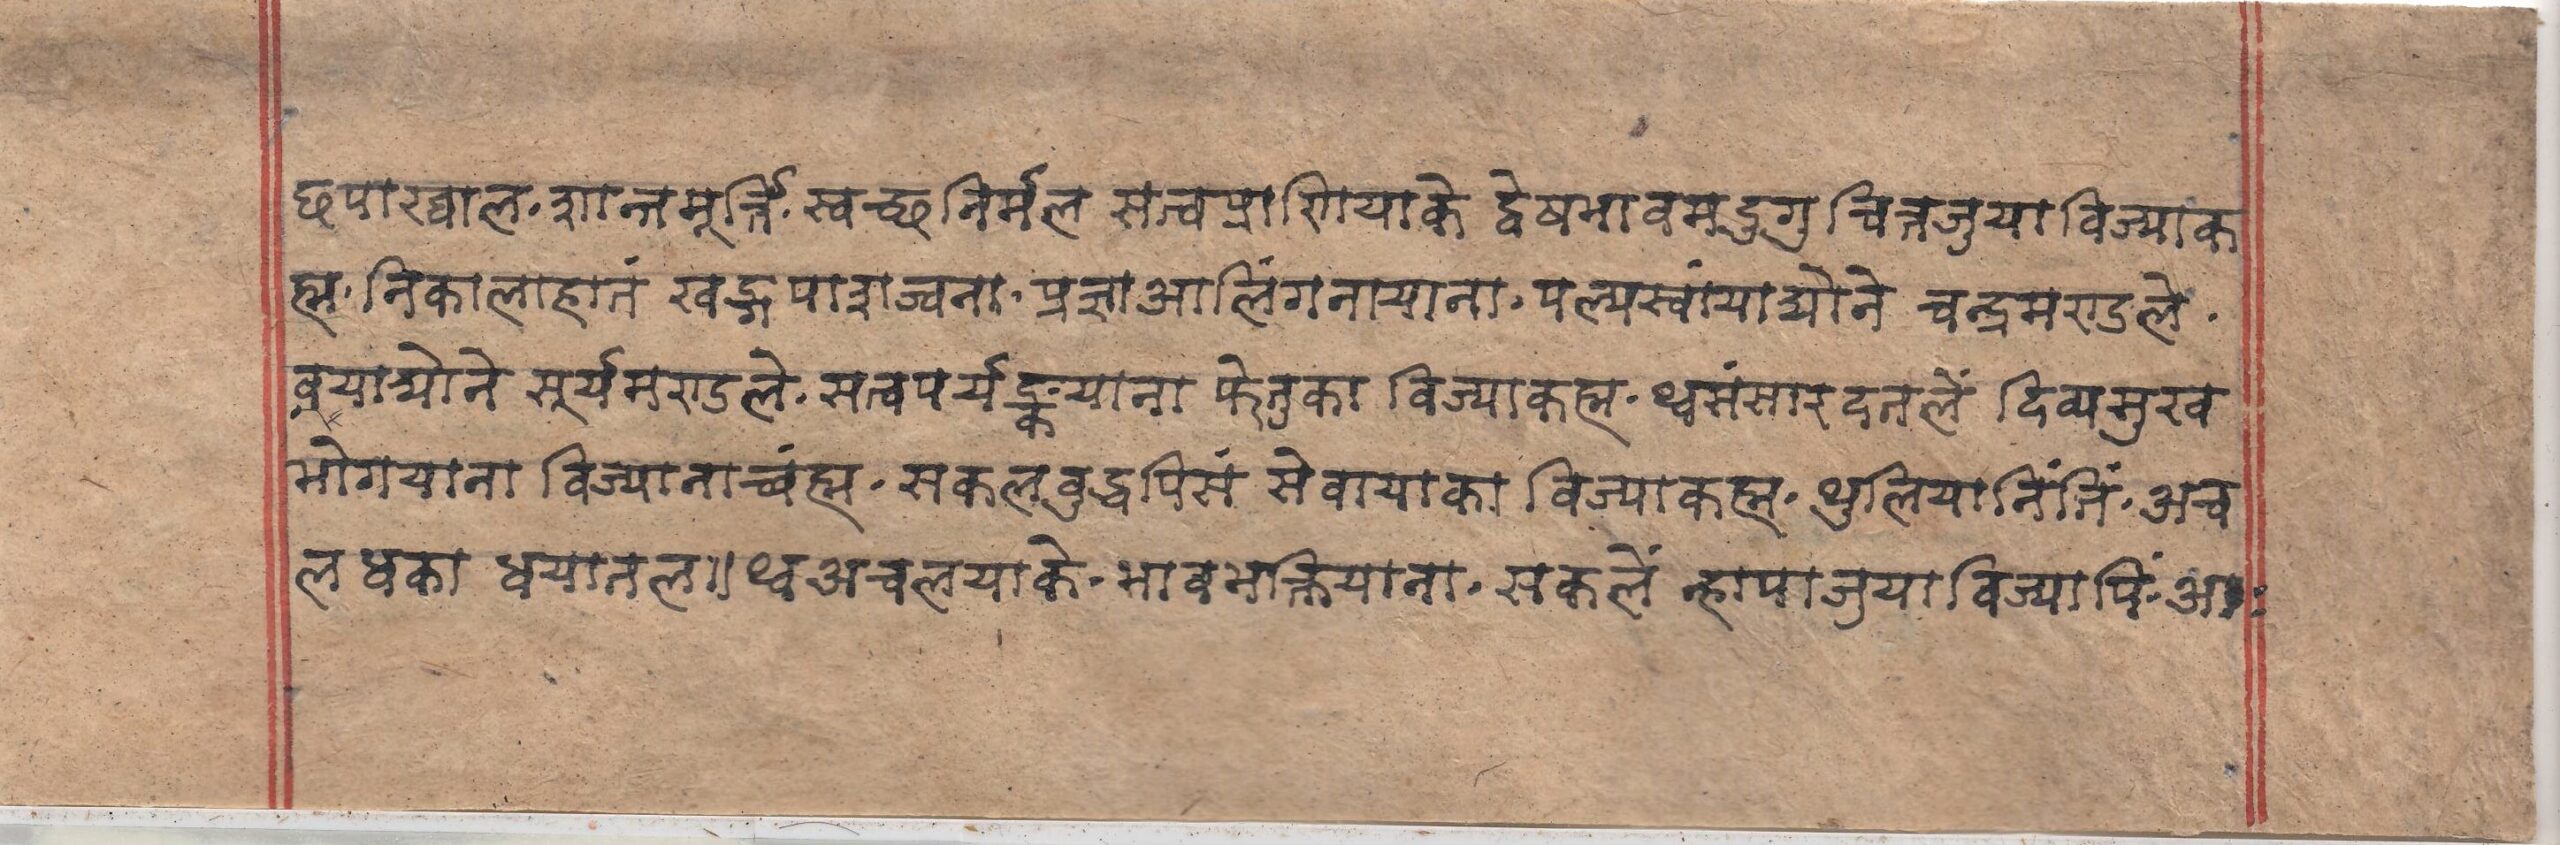 छपाख्वाल॰ शान्तमूर्त्ति॰ स्वच्छनिर्मल सत्त्वप्राणियाके द्वेषभावमदुगु चित्तजुया विज्याक
ह्म॰ निकालाहातं खड्गपाशज्वना॰ प्रज्ञाआलिंगनायाना॰ पल्यस्वांयाद्योने चन्द्रमण्डले॰
वुयाद्योने सूर्यमण्डले॰ सत्त्वपर्यङ्कयाना फेतुका विज्याकह्म॰ थ्वसंसारदतलें दिव्यसुख
भोगयाना विज्यानाच्वंह्म॰ सकलवुद्धपिसं सेवायाका विज्याकह्म॰ थुलियानिंतिं॰ अच
ल धका धयातल॥ थ्वअचलयाके॰ भावभक्तियाना॰ सकलें न्हापाजुया विज्यापिं॰